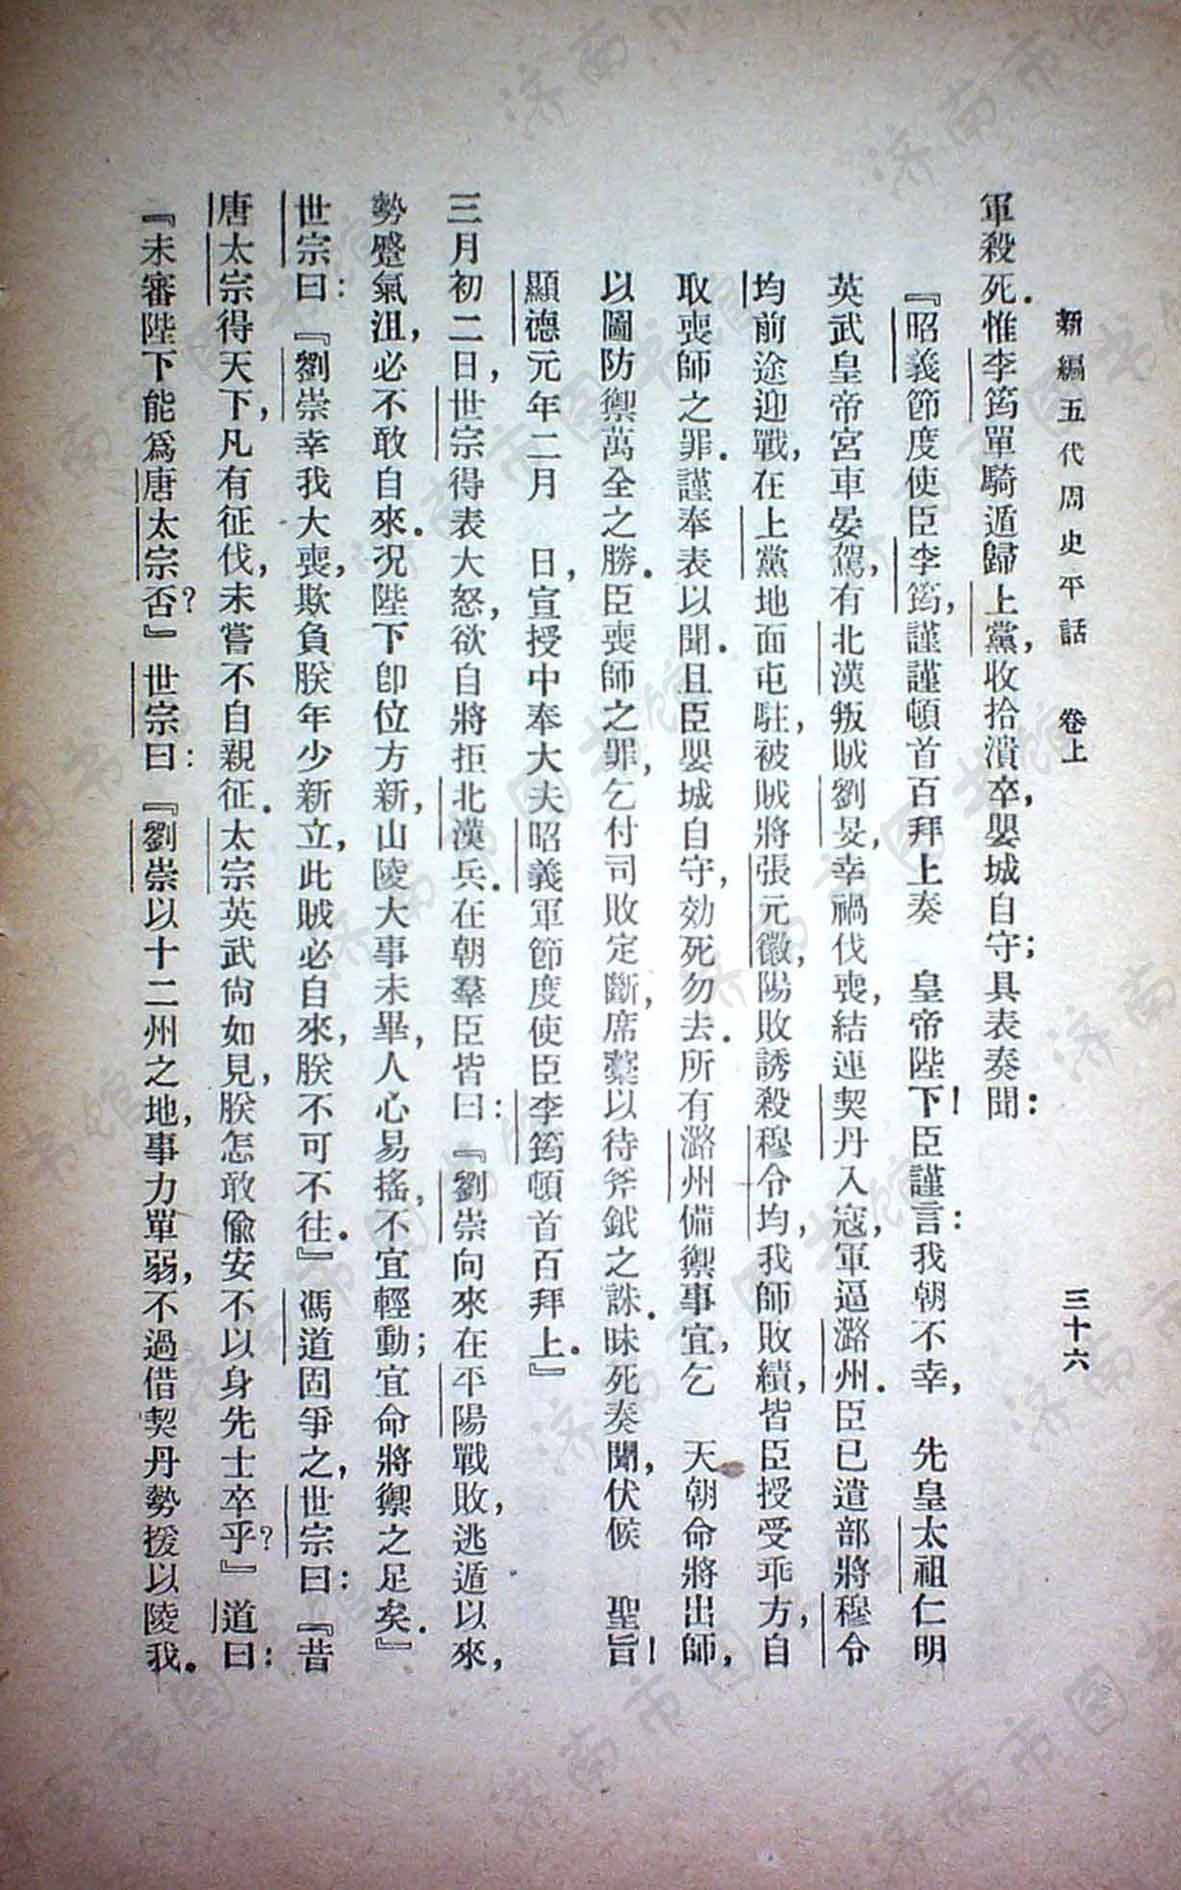 新編五代周史平話 卷上 三十六
軍殺死．惟李筠單騎遁歸上黨，收拾潰卒，嬰城自守；具表奏聞：
『昭義節度使臣李筠，謹謹頓首百拜上奏　皇帝陛下！臣謹言：我朝不幸，　先皇太祖仁明
英武皇帝宮車晏駕，有北漢叛賊劉旻，幸禍伐喪，結連契丹入寇，軍逼潞州．臣已遣部將穆令
均前途迎戰，在上黨地面屯駐，被賊將張元徽，陽敗誘殺穆令均，我師敗績，皆臣授受乖方，自
取喪師之罪．謹奉表以聞．且臣嬰城自守，効死勿去．所有潞州備禦事宜，乞　天朝命將出師，
以圖防禦萬全之勝．臣喪師之罪，乞付司敗定斷，席藁以待斧鉞之誅．昧死奏聞，伏候　聖旨！
顯德元年二月　日，宣授中奉大夫昭義軍節度使臣李筠頓首百拜上．』
三月初二日，世宗得表大怒，欲自將拒北漢兵．在朝羣臣皆曰：『劉崇向來在平陽戰敗，逃遁以來，
勢蹙氣沮，必不敢自來．況陛下卽位方新，山陵大事未畢，人心易搖，不宜輕動；宜命將禦之足矣．』
世宗曰：『劉崇幸我大喪，欺負朕年少新立，此賊必自來，朕不可不往．』馮道固爭之，世宗曰：『昔
唐太宗得天下，凡有征伐，未嘗不自親征．太宗英武尙如見，朕怎敢偸安不以身先士卒乎？』道曰：
『未審陛下能爲唐太宗否？』世宗曰：『劉崇以十二州之地，事力單弱，不過借契丹勢援以陵我．